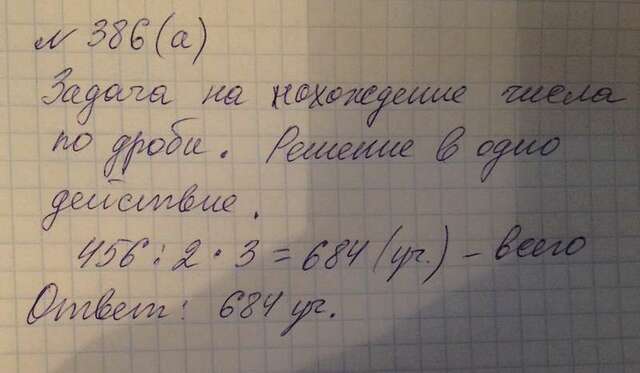 № 386(а)
Задача на нохождение числа
по дроби. Решение в одно
действие.
456 : 2 · 3 = 684 (уч.) – всего
Ответ: 684 уч.